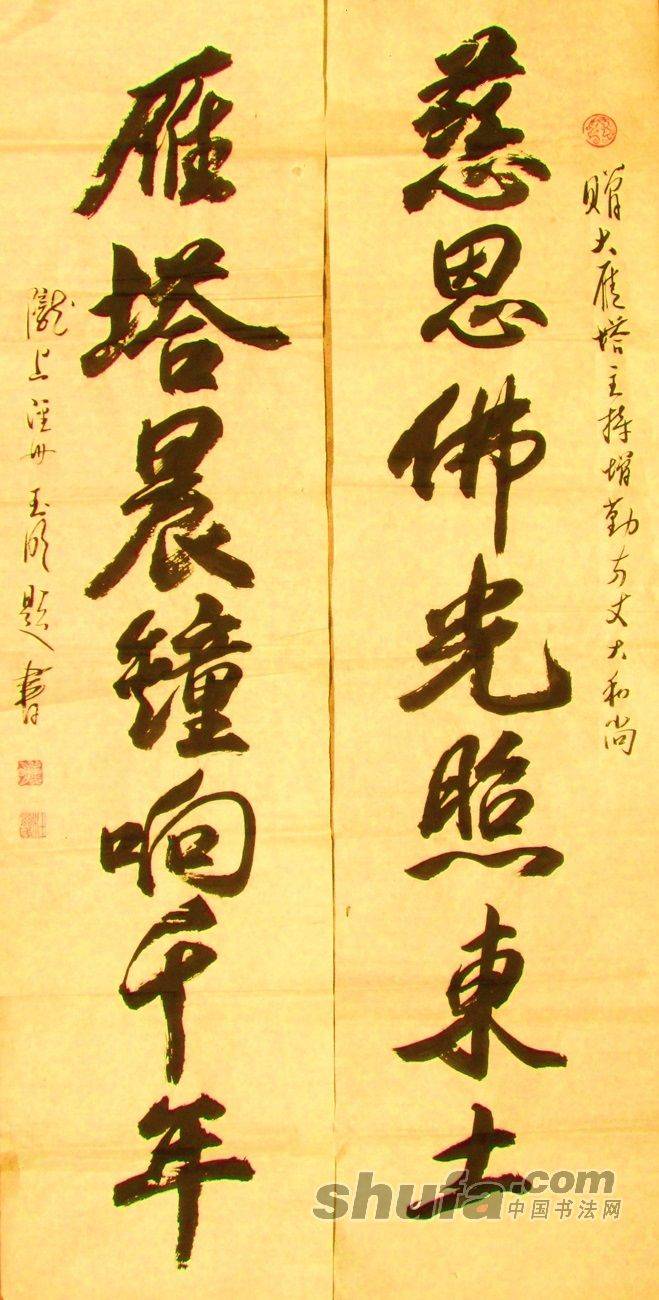 赠大雁塔主持增勤方丈大和尚
慈恩佛光照東土
雁塔晨鐘响千年
隴上泾州玉明题書
shufa.com
中国书法网